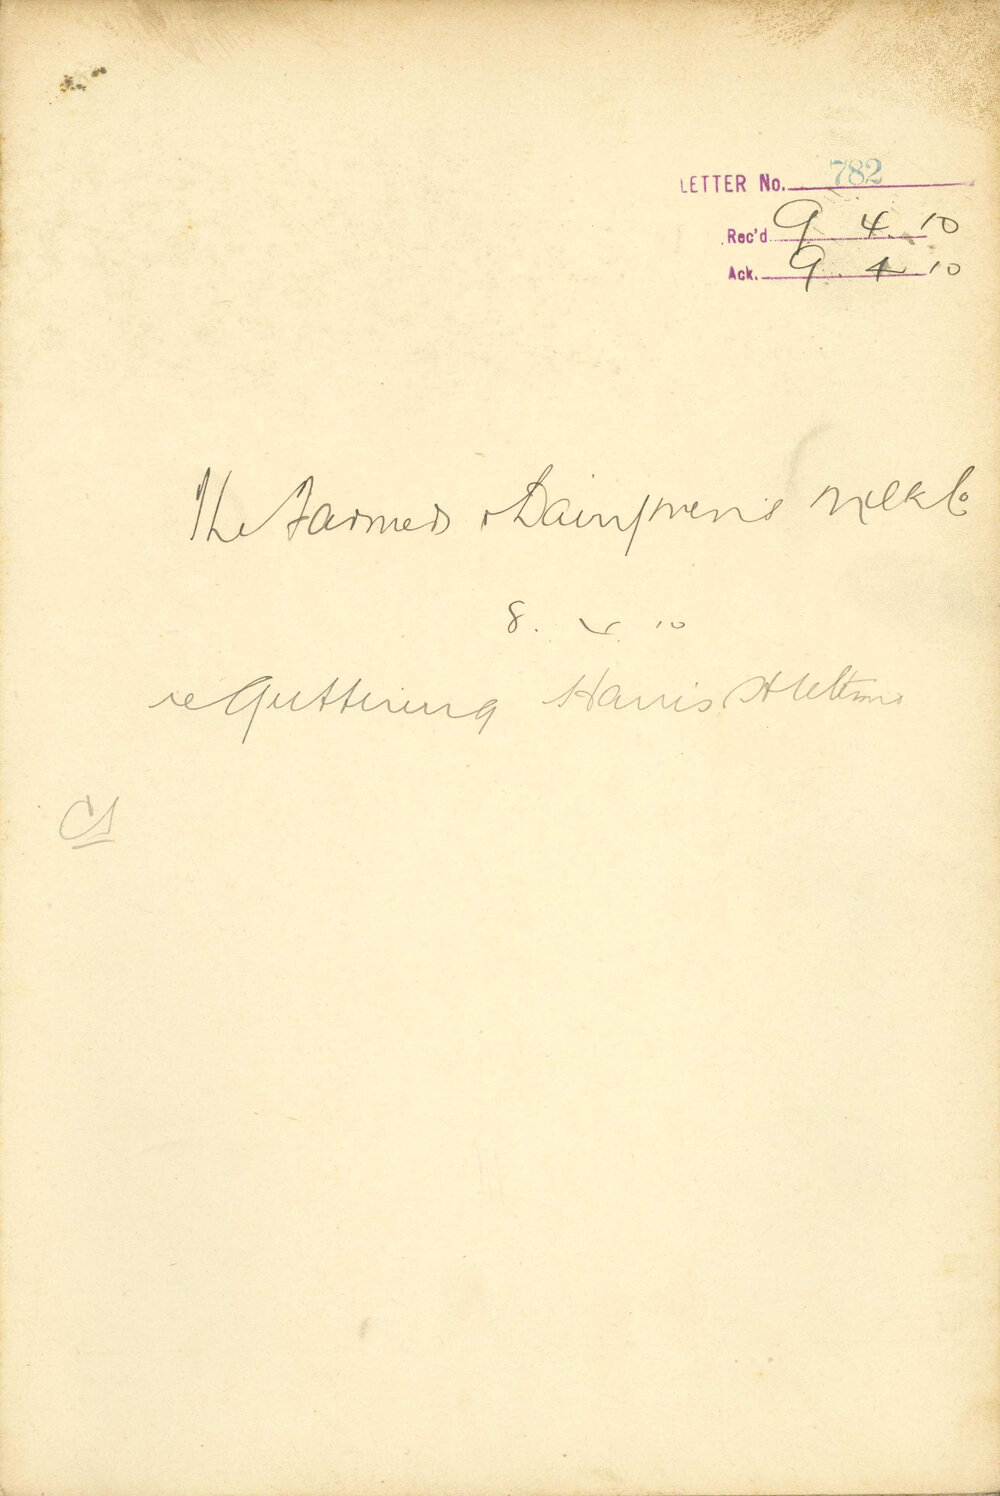 LETTER No. 782
Rec'd 9 4. 10
Ack. 9. 4 10
The Farmers & Dairymen's Milk Co
8. 4 10
re Guttering Harris St